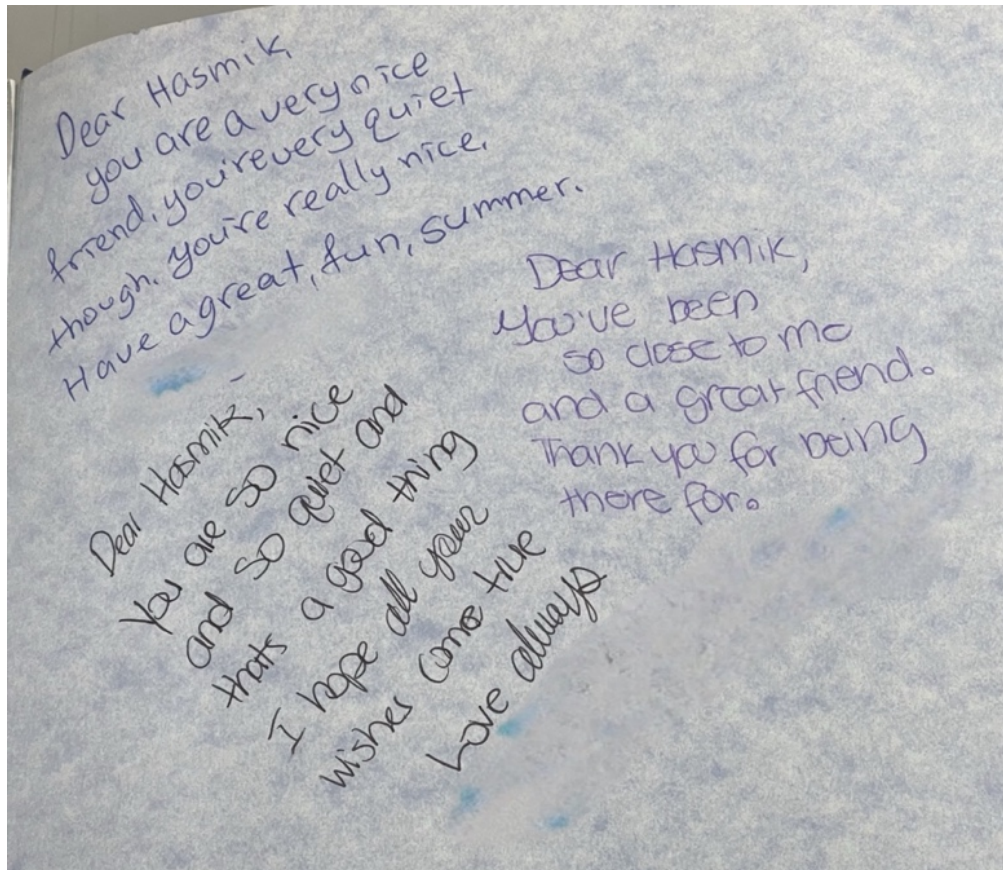 Dear Hasmik
you are a very nice
friend, you're very quiet
though. you're really nice.
Have a great, fun, summer.
Dear Hasmik,
You've been
so close to me
and a great friend.
Thank you for being
there for.
Dear Hasmik,
you are so nice
and so quiet and
thats a good thing
I hope all your
wishes come true
Love always